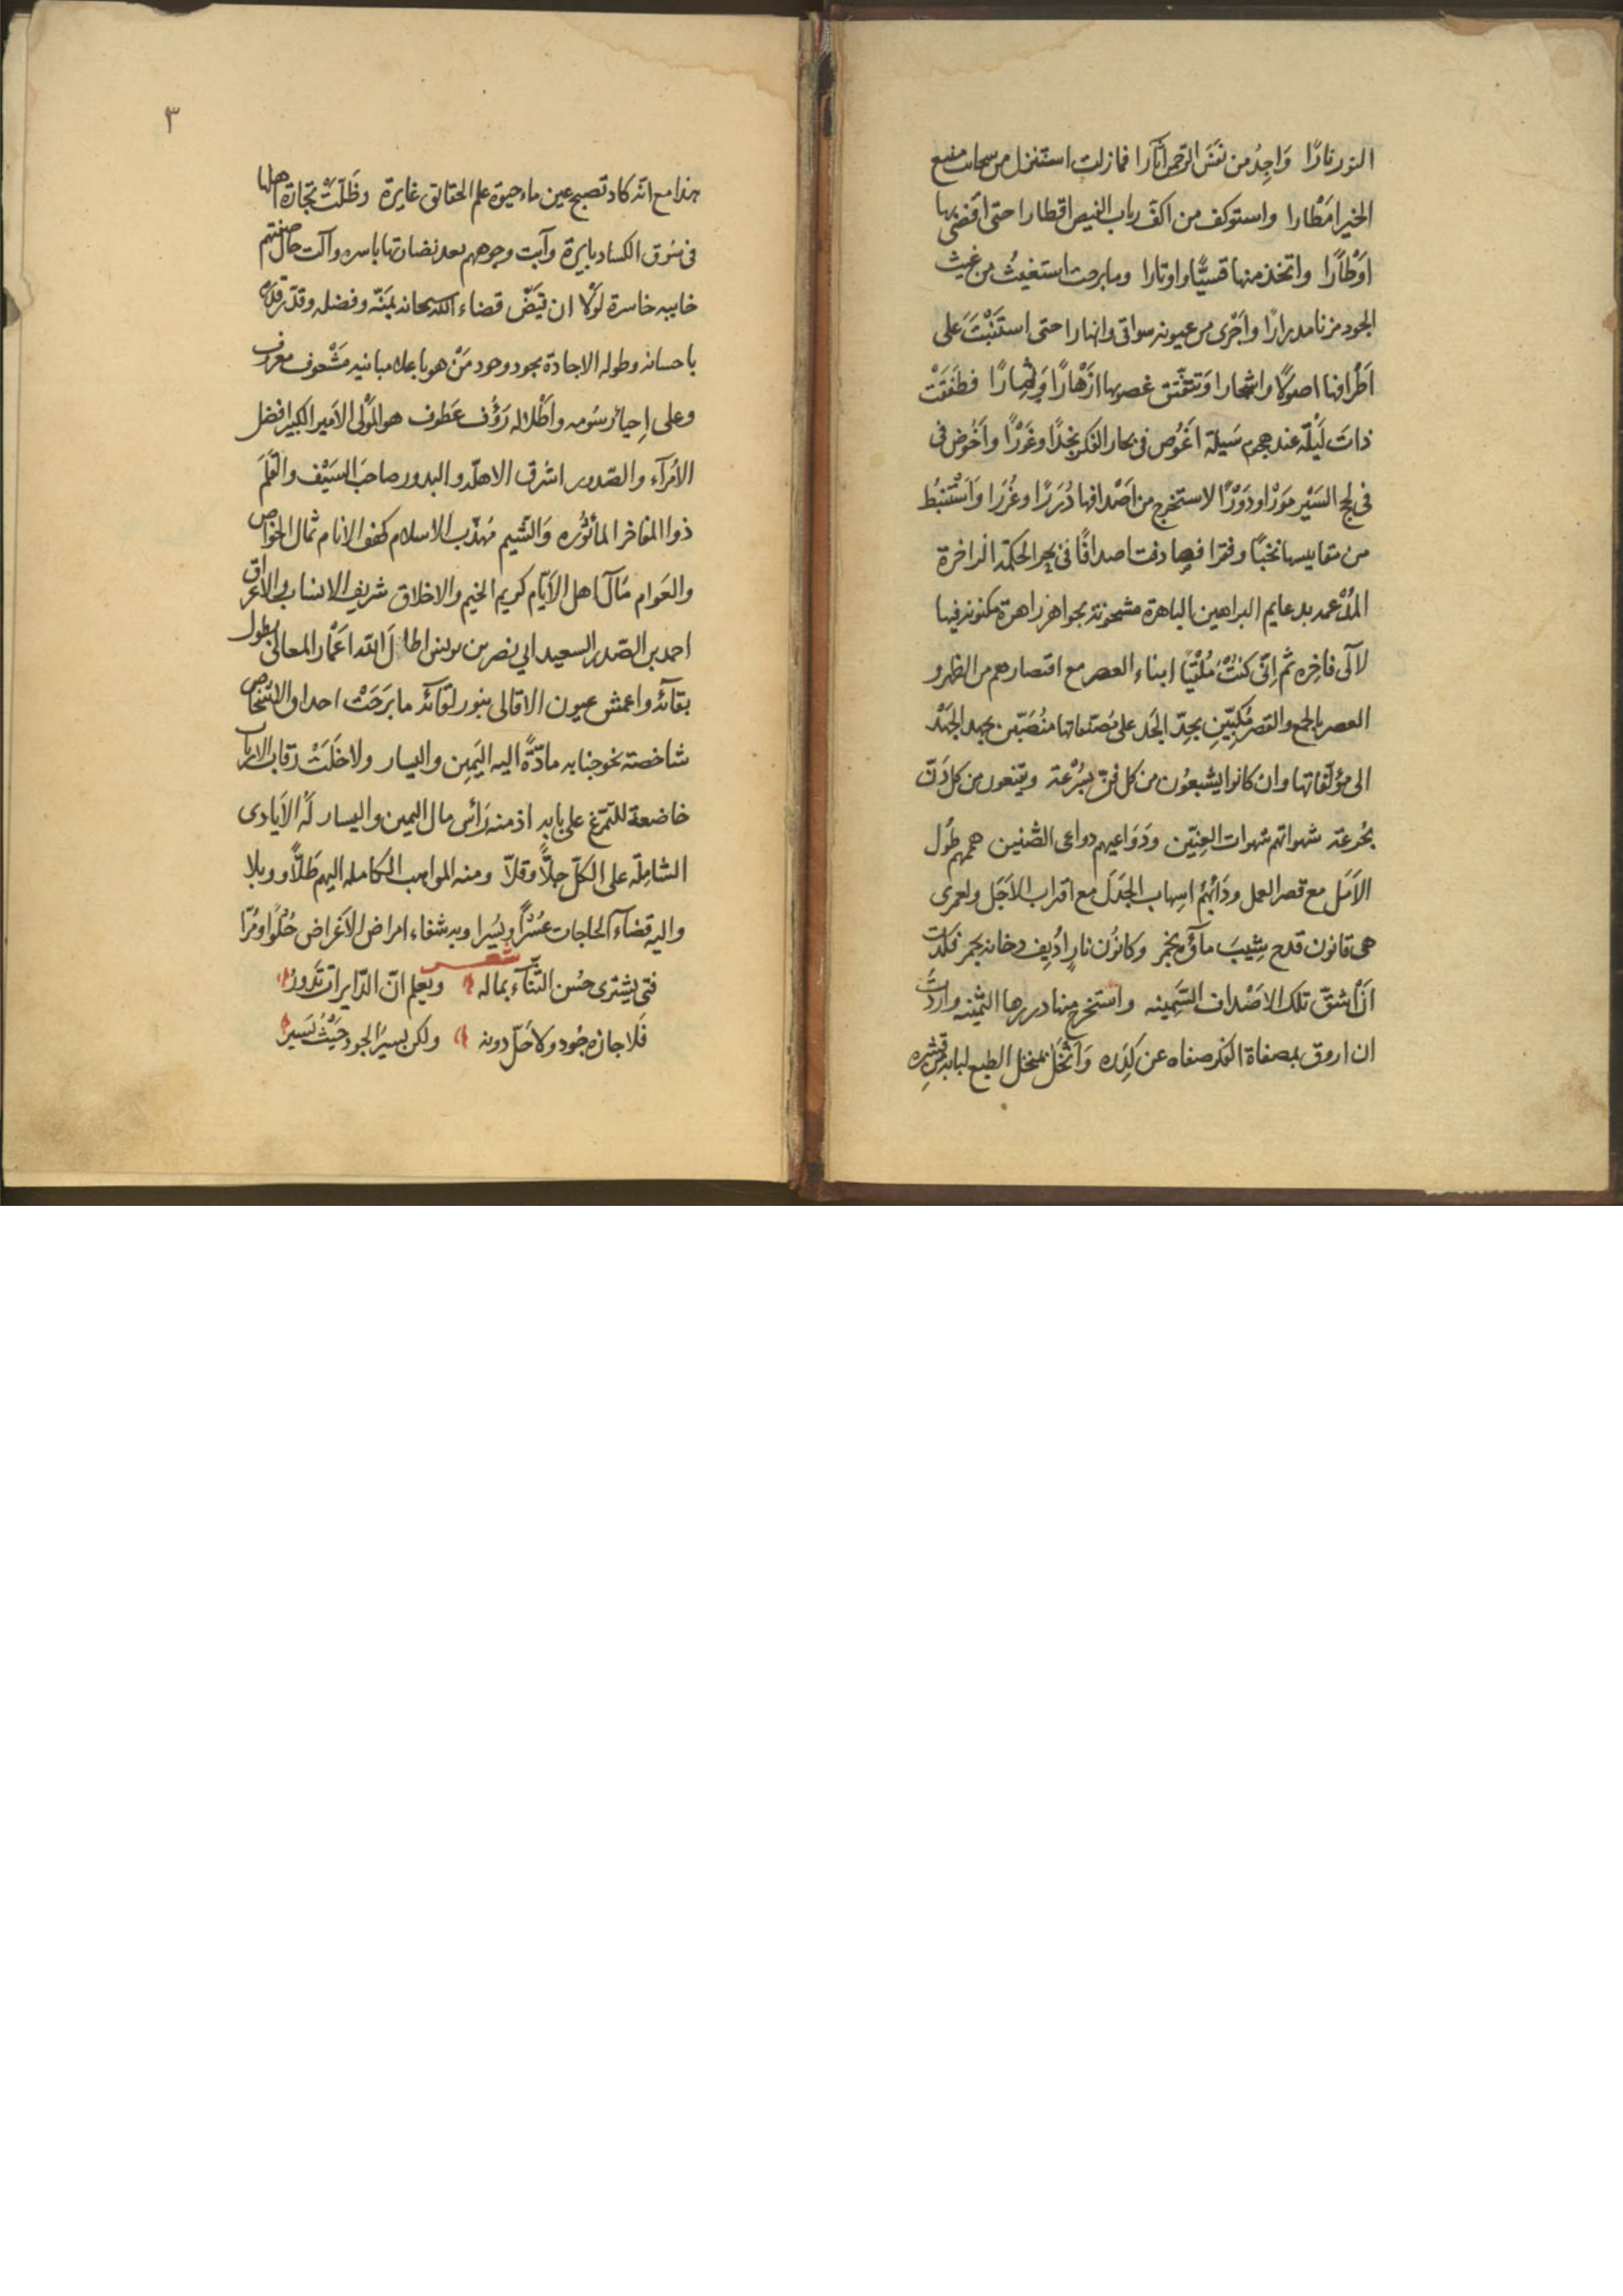 النور نارًا وَاجِدُ من نفَسَ الرّحمن آثارا فما زلت استنزل من سحايب منبع
الخير امَطْارا واستوكف من اكفّ رباب الفيض اقطارا حتى اقضى بها
اوَطْارًا واتخذ منها قسيًّا واوتارا وما برحت استغيثُ من غيث
الجود مزنا مدرارًا واَجْرى من عيونه سواقى وانهارا حتى استَنْبَتَ على
اَطْرافها اصولًا واشجارا وَتتفتّق غصونها ازَهْارًا وَثمارًا فطَفَقَتْ
ذاتَ لَيْلَة عند هجوم سَيلة اغَوُص فى بحار الفكر نجدًا وغَوَرًْا واَخُوض فى
فى لجج السَيْر مَوَرْا ودَوَرًْا لاستخرج من اَصْدافها دُرَرًا وغُرَرا وَاسَتْنبُط
من مقاييسها نخبًا وفقرا فصادفت اصدافًا فى بحر الحكمة الزاخرة
المُدْعمه بدعايم البراهين الباهرة مشحونة بجواهر زاهرة مكنونة فيها
لآلى فاخِره ثم اِنّى كنتُْ مُلْقيًا ابناء العصر مع اقتصارهم من الظهر و
العصر بالجمع والقصر مُكِبّيّنِ بجِدّ الجَدّ على مُصَنفاتها مُنصَبّين بجهد الجَهْد
الى مؤلّفاتها وان كانوا يشبعُون من كل فنّ بسُرْعة ويقنعون من كل دَنّ
بجُرعة شهواتهم شهوات العِنِيّن ودَوَاعيهم دواعى الضّنين هممهم طُول
الاَمَل مع قصر العمل ودَأبُهُمُ اسِهاب الجَدَل مع اقتراب الاَجَل ولعمرى
هى قانون قدح شِيبَ مآؤه بخمر وكانُون نارٍ اُدِيف دخانه بجمر فكدت
اَنْ اَشقّ تلك الاصَْداف السَّمِينه واستخرج منها دررها الثمينه واردت
ان اروق بمصفاة الفكر صفاه عن كدَِره وَانَْخُل بمنخل الطبع لبابه من قشِره
٣
هذا مع انّه كاد تصبح عين ماء حيوة علم الحقائق غايرة وظَلَتَّْ تجارة اهلها
فى سُوق الكساد بايرة وآبت وجوههم بعد نضارتها باسره وآلت حال صفقتهم
خايبه خاسرة لَوْلا ان قيَضّ قضاء الله سبحانه بمَنّه وفضله وقدّر قدَره
باحسانه وطوله الاجادة بجود وجود مَنْ هو باعلاء مبانيه مَشْعوف معروف
وعلى اِحيائ رسُومه واَطْلاله رَؤُف عَطوف هو المَوْلى الاَمير الكبير افضل
الاُمَرآء والصّدور اشرف الاهلّة والبدور صاحَب السَيْف والقَلَم
ذو المفاخر المأثوُره وَالشّيم مُهذّب الاسلام كهف الانام ثمال الخواص
والعَوام مَآل اهل الاَيّام كريم الخِيم والاخلاق شريف الانساب والاَعراق
احمد بن الصّدر السعيد ابى نصر بن يونس اطالَ الله اعَمْار المعالى بطول
بقآئه واعمش عيون الاقالى بنور لقآئه ما بَرَحَتْ احداق الاشخاص
شاخصة نحو جنابه مادّةً اليه اليَمِين واليسار ولا خَلَتْ رقاب الارباب
خاضعة للتمّرغ على بابه اذ منه رَأس مال اليمين واليسار لَهُ الاَيادى
الشامِلَة على الكلّ جِلاًّ وقلاّ ومنه المواهب الكامله اليهم طَلاًّ ووبلا
واليه قضآء الحاجات عُسْرًا ويُسْرا وبه شفاء امراض الاَغَراض حُلْوًا ومُرّا
شعـــر
فتى يشترى حُسن الثّنآء بماله ويَعلم انّ الدّايرات تَدُورُ
فَلا جازه جُود ولا حَلّ دونه ولكن يسيرُ الجود حَيْثُ يَسيرُ